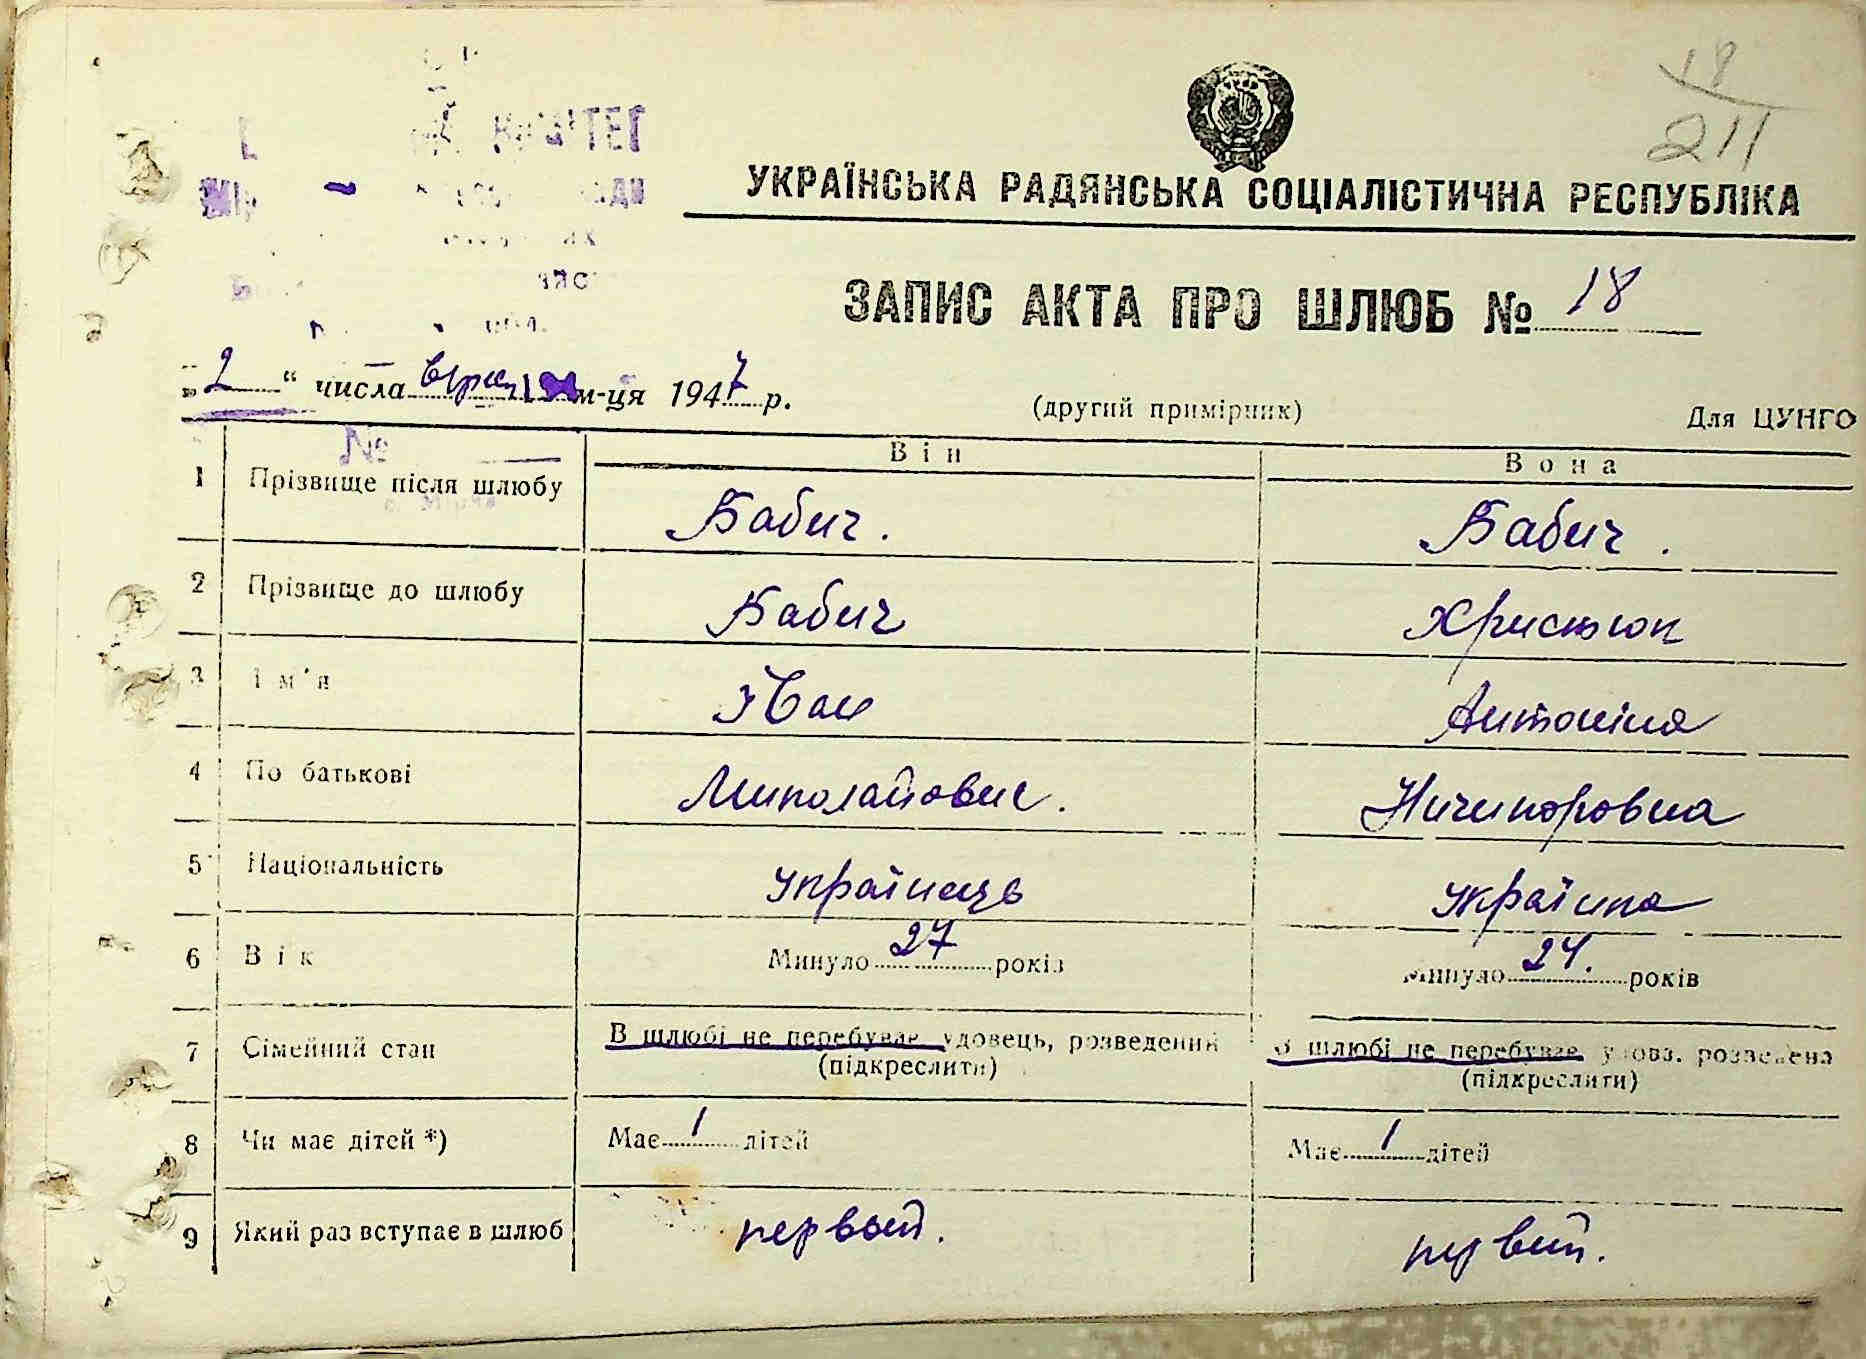 18
211
КОМІТЕТ
УКРАЇНСЬКА РАДЯНСЬКА СОЦІАЛІСТИЧНА РЕСПУБЛІКА
ЗАПИС АКТА ПРО ШЛЮБ № 18
„2“ числа м-ця 1947 р.
(другий примірник)
Для ЦУНГО
№
Він Вона
1 Прізвище після шлюбу Бабич. Бабич.
2 Прізвище до шлюбу Бабич Христюк
3 Ім'я Іван Антоніна
4 По батькові Миколайович. Ничипоровна
5 Національність Українець Українка
6 Вік Минуло 27 років Минуло 24. років
7 Сімейний стан В шлюбі не перебував удовець, розведений В шлюбі не перебував удова. розведена
(підкреслити) (підкреслити)
8 Чи має дітей *) Має 1 дітей Має 1 дітей
9 Який раз вступає в шлюб первый. первий.